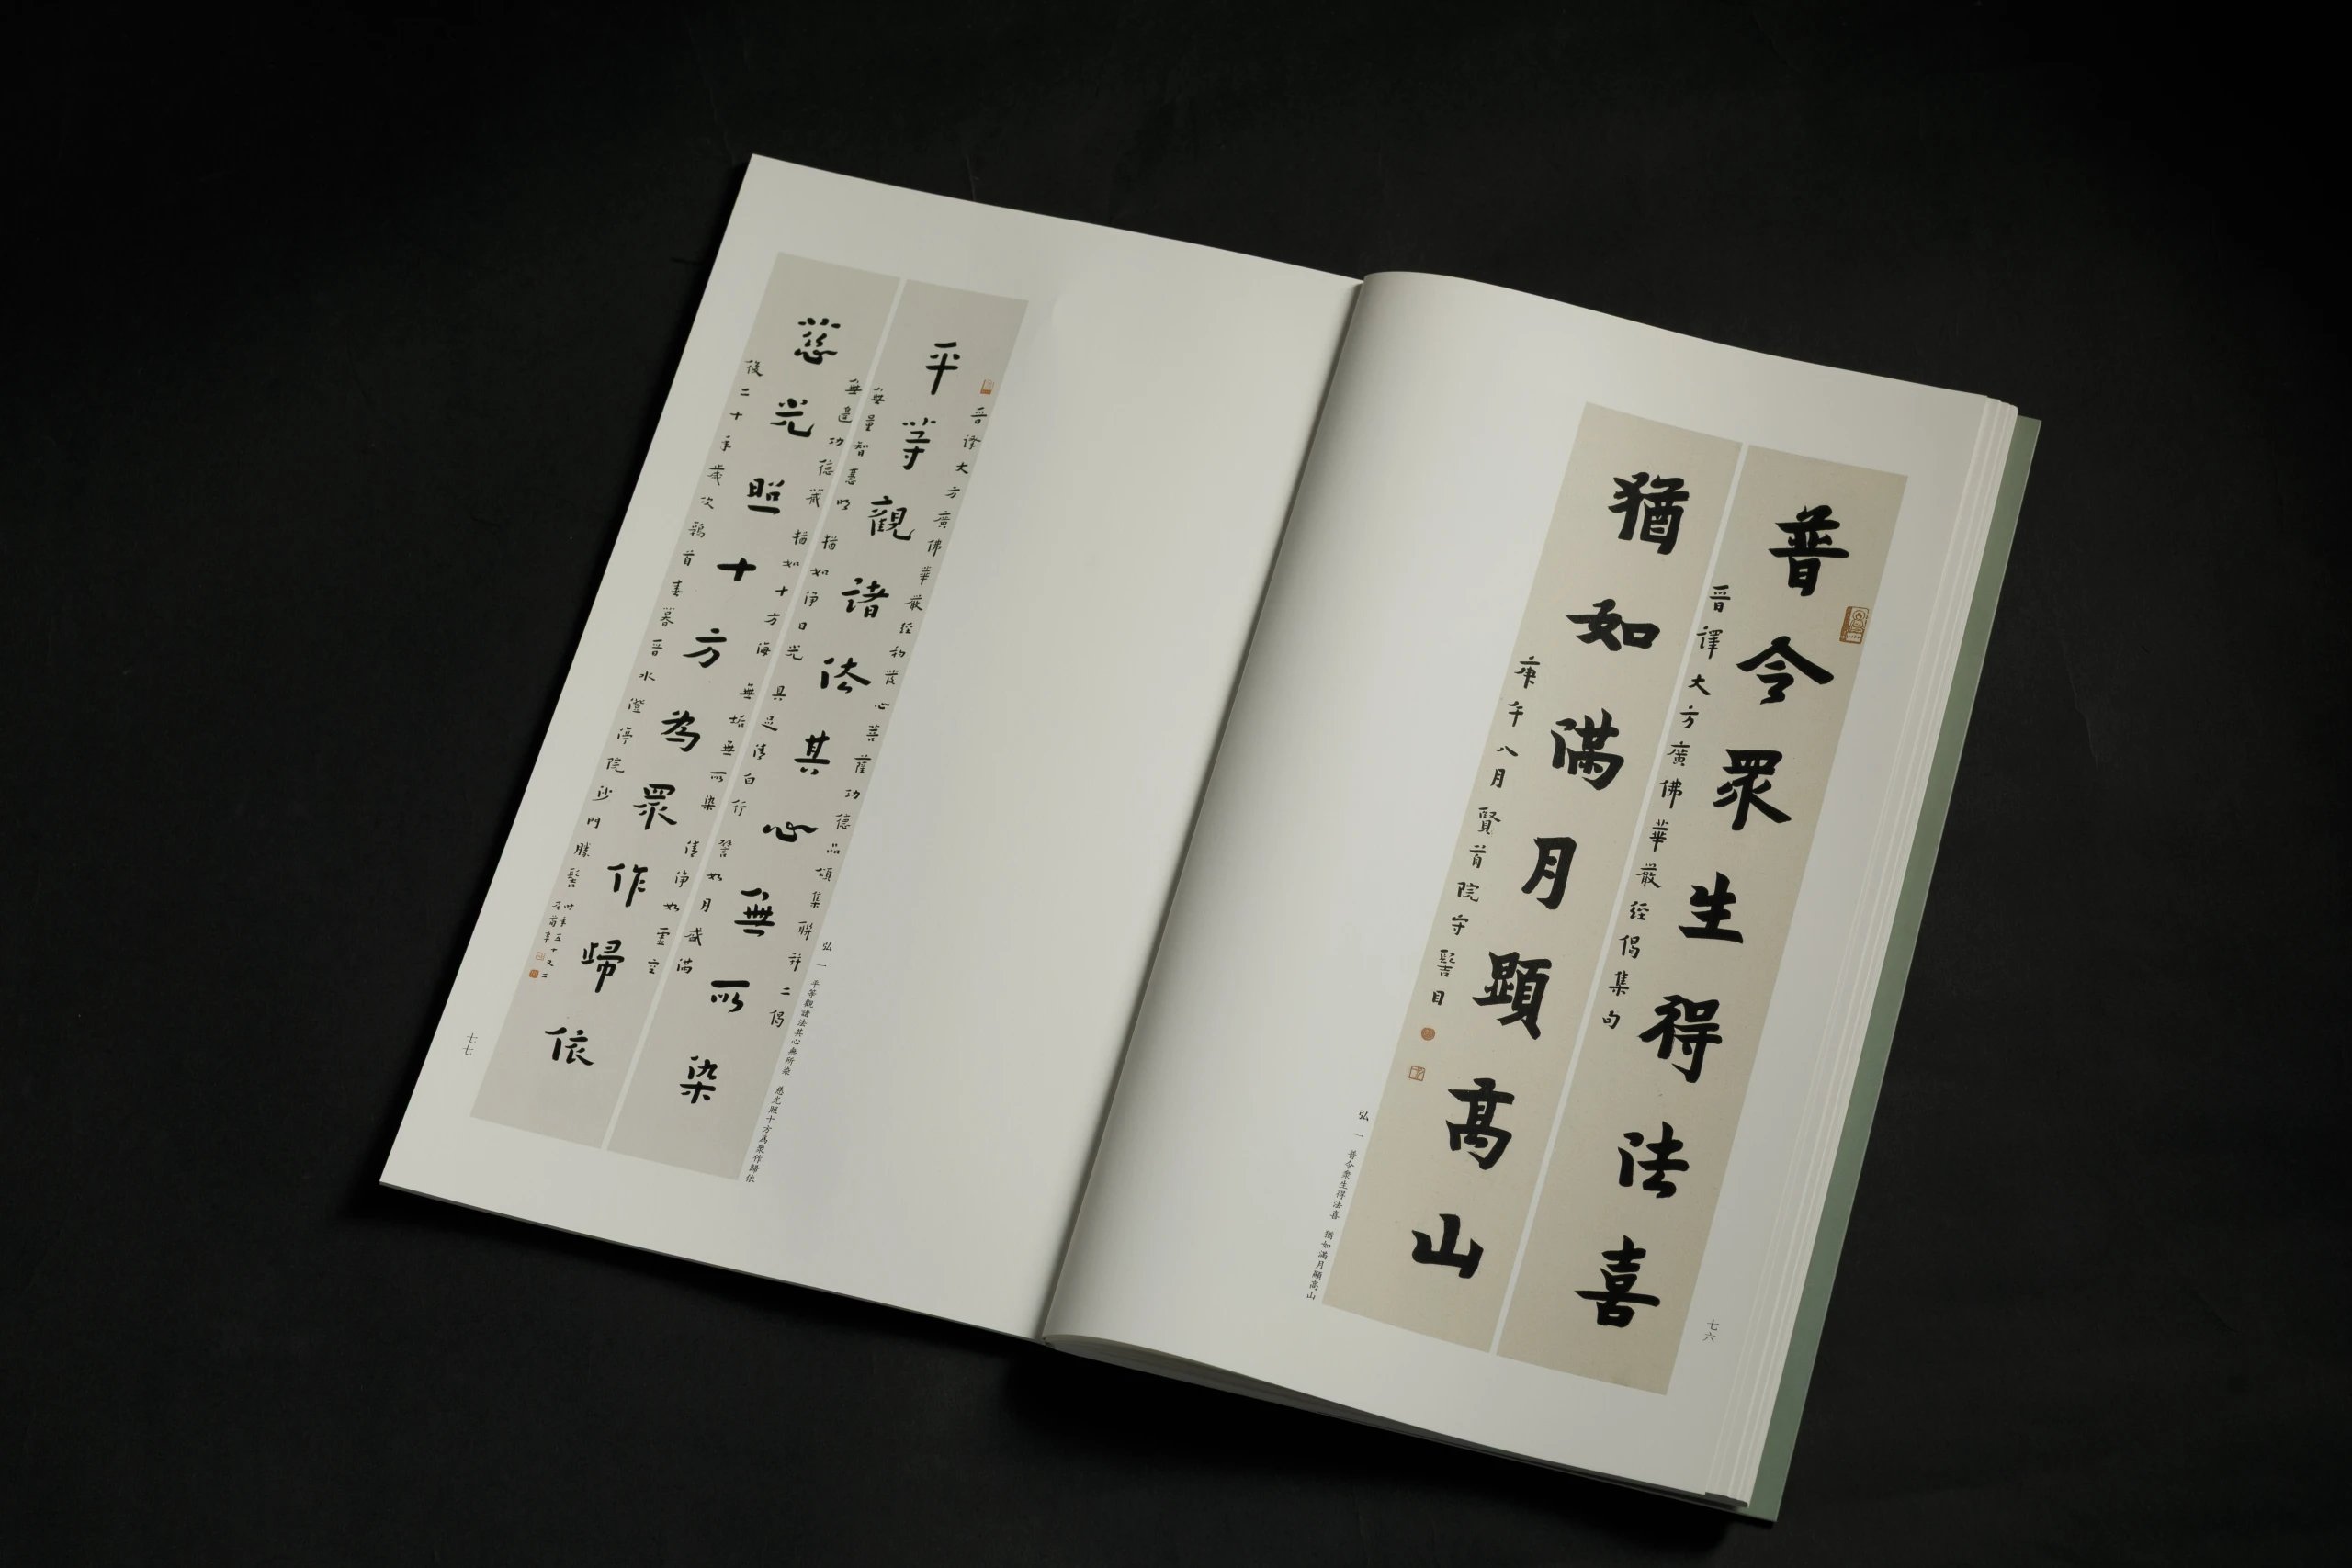 普令眾生得法喜
晉譯大方廣佛華嚴經偈集句
猶如滿月顯高山
庚午八月賢首院守
弘一 普令衆生得法喜 猶如滿月顯高山
七六
平等觀諸法其心無所染
晉譯大方廣佛華嚴經初發心菩薩功德品頌集聯并二偈
無量智慧明 猶如淨日光 具足清白行 譬如月盛滿
慈光照十方為眾作歸依
無邊功德藏 猶如十方海 無垢無所染 清淨如虛空
後二十年歲次鶉首春暮晉水澄停院沙門勝髻
時年五十又二
弘一 平等觀諸法其心無所染 慈光照十方為衆作歸依
七七